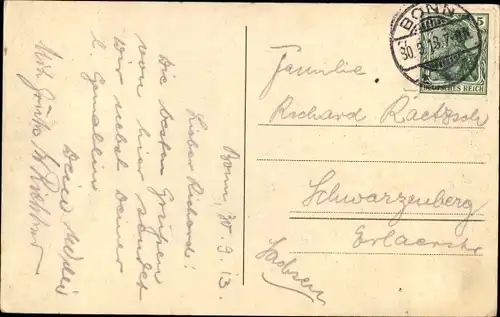 Bonn, 30.9.13.
Lieber Richard!
Die besten Grüße
von hier sendet
Dir nebst Deiner
l. Gemahlin
Deine
BONN
30.9.13.7-8N
5
DEUTSCHES REICH
Familie
Richard Raetzsch
Schwarzenberg
Erlaerstr
Sachsen